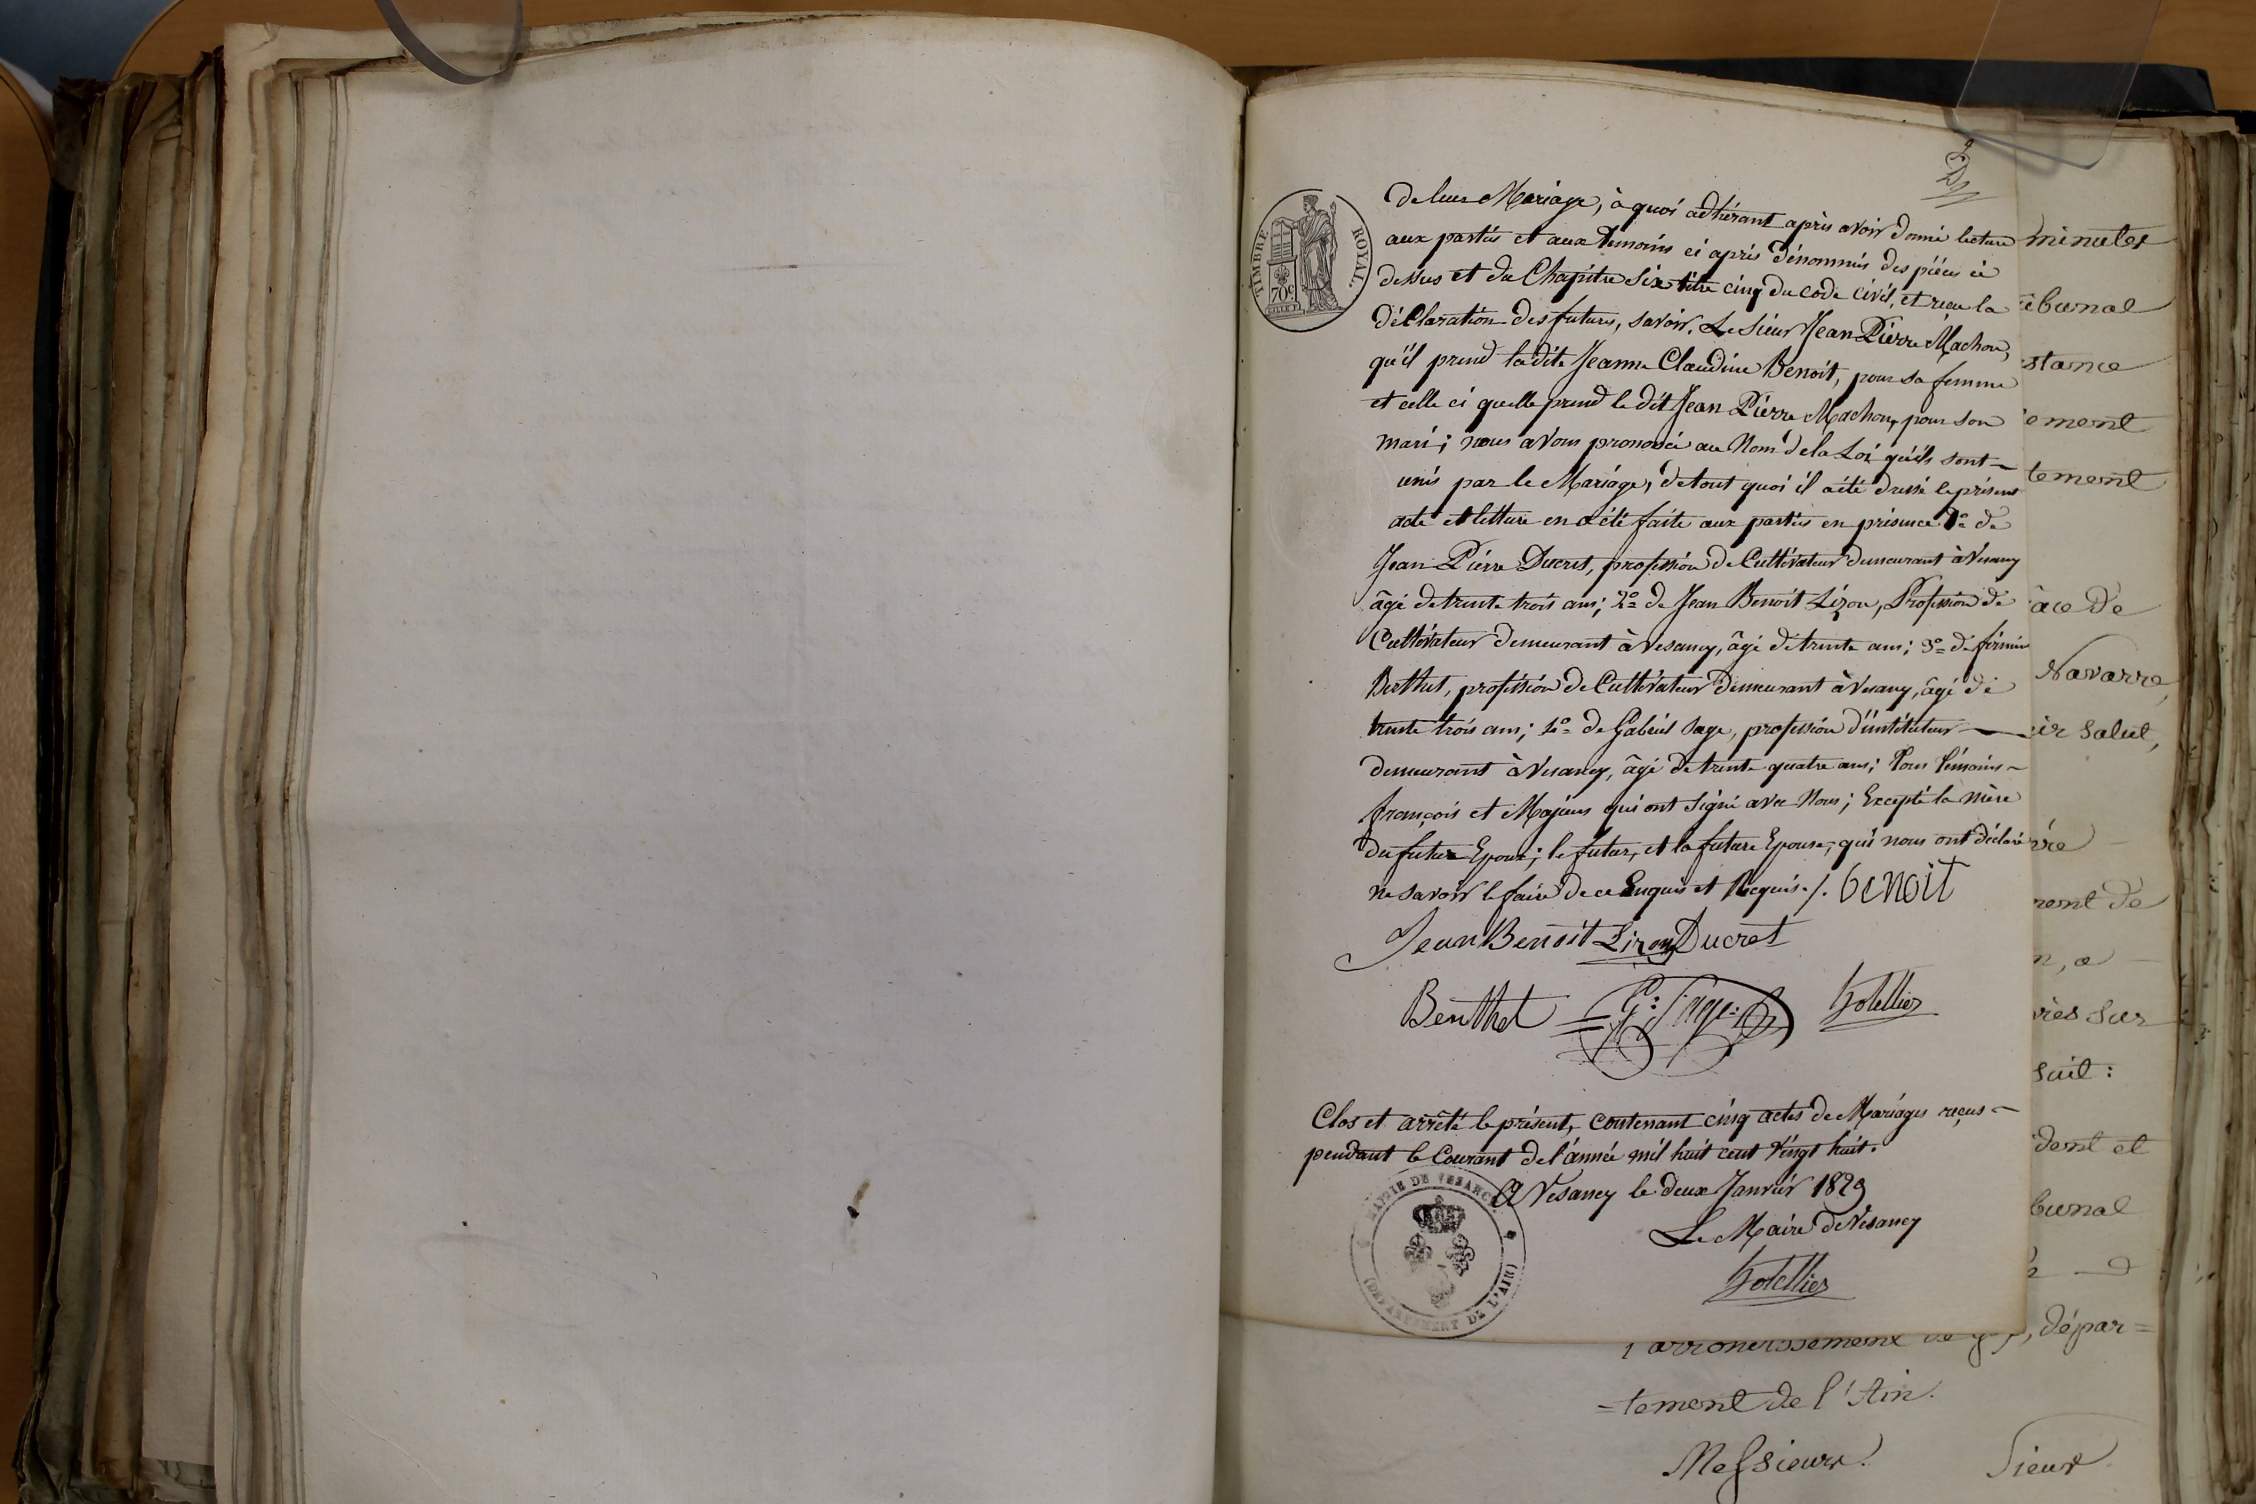 de leur Mariage, à quoi adhérant après avoir donné lecture
aux partiés et aux témoins ci après dénommés des piéces ci
dessus et du Chapitre Six titre cinq du code civil, et reçu la
déclaration des futurs, savoir, Le Sieur Jean Pierre Machon,
qu'il prend la dite Jeanne Claudine Benoit, pour sa femme
et celle ci quelle prend le dit Jean Pierre Machon, pour son
mari; nous avons prononcé au Nom de la Loi qu'ils sont
unis par le Mariage, de tout quoi il a été dressé le présent
acte et lecture en a été faite aux parties en présence 1º de
Jean Pierre Ducret, profession de Cultivateur demeurant à Vesancy
âgé de trente trois ans; 2º de Jean Benoit Lizon, Profession de
Cultivateur demeurant à Vesancy, âgé de trente ans; 3º de firmin
Berthet, profession de Cultivateur demeurant à Vesancy, âgé de
trente trois ans; 4º de Gabriel Sage, profession d'instituteur
demeurant à Vesancy, âgé de trente quatre ans; Tous témoins
françois et Majeurs qui ont signé avec Nous; Excepté la mère
du futur Epoux; le futur, et la future Epouse, qui nous ont déclaré
ne savoir le faire de ce Enquis et Requis ./. benoit
Jean Benoit Lizon Ducret
Benthet G: Sage
Clos et arrêté le présent, contenant cinq actes de Mariages reçus
pendant le Courant de l'année mil huit cent vingt huit.
A Vesancy le deux Janvier 1829
Le Maire de Vesancy
TIMBRE ROYAL
70c
MAIRIE DE VESANCY
(DEPARTEMENT DE L'AIN)
minutes
stance
tement
Navarre,
salut,
suit:
arrondissement de Gex, dépar=
=tement de l'Ain.
Messieurs
Sieur